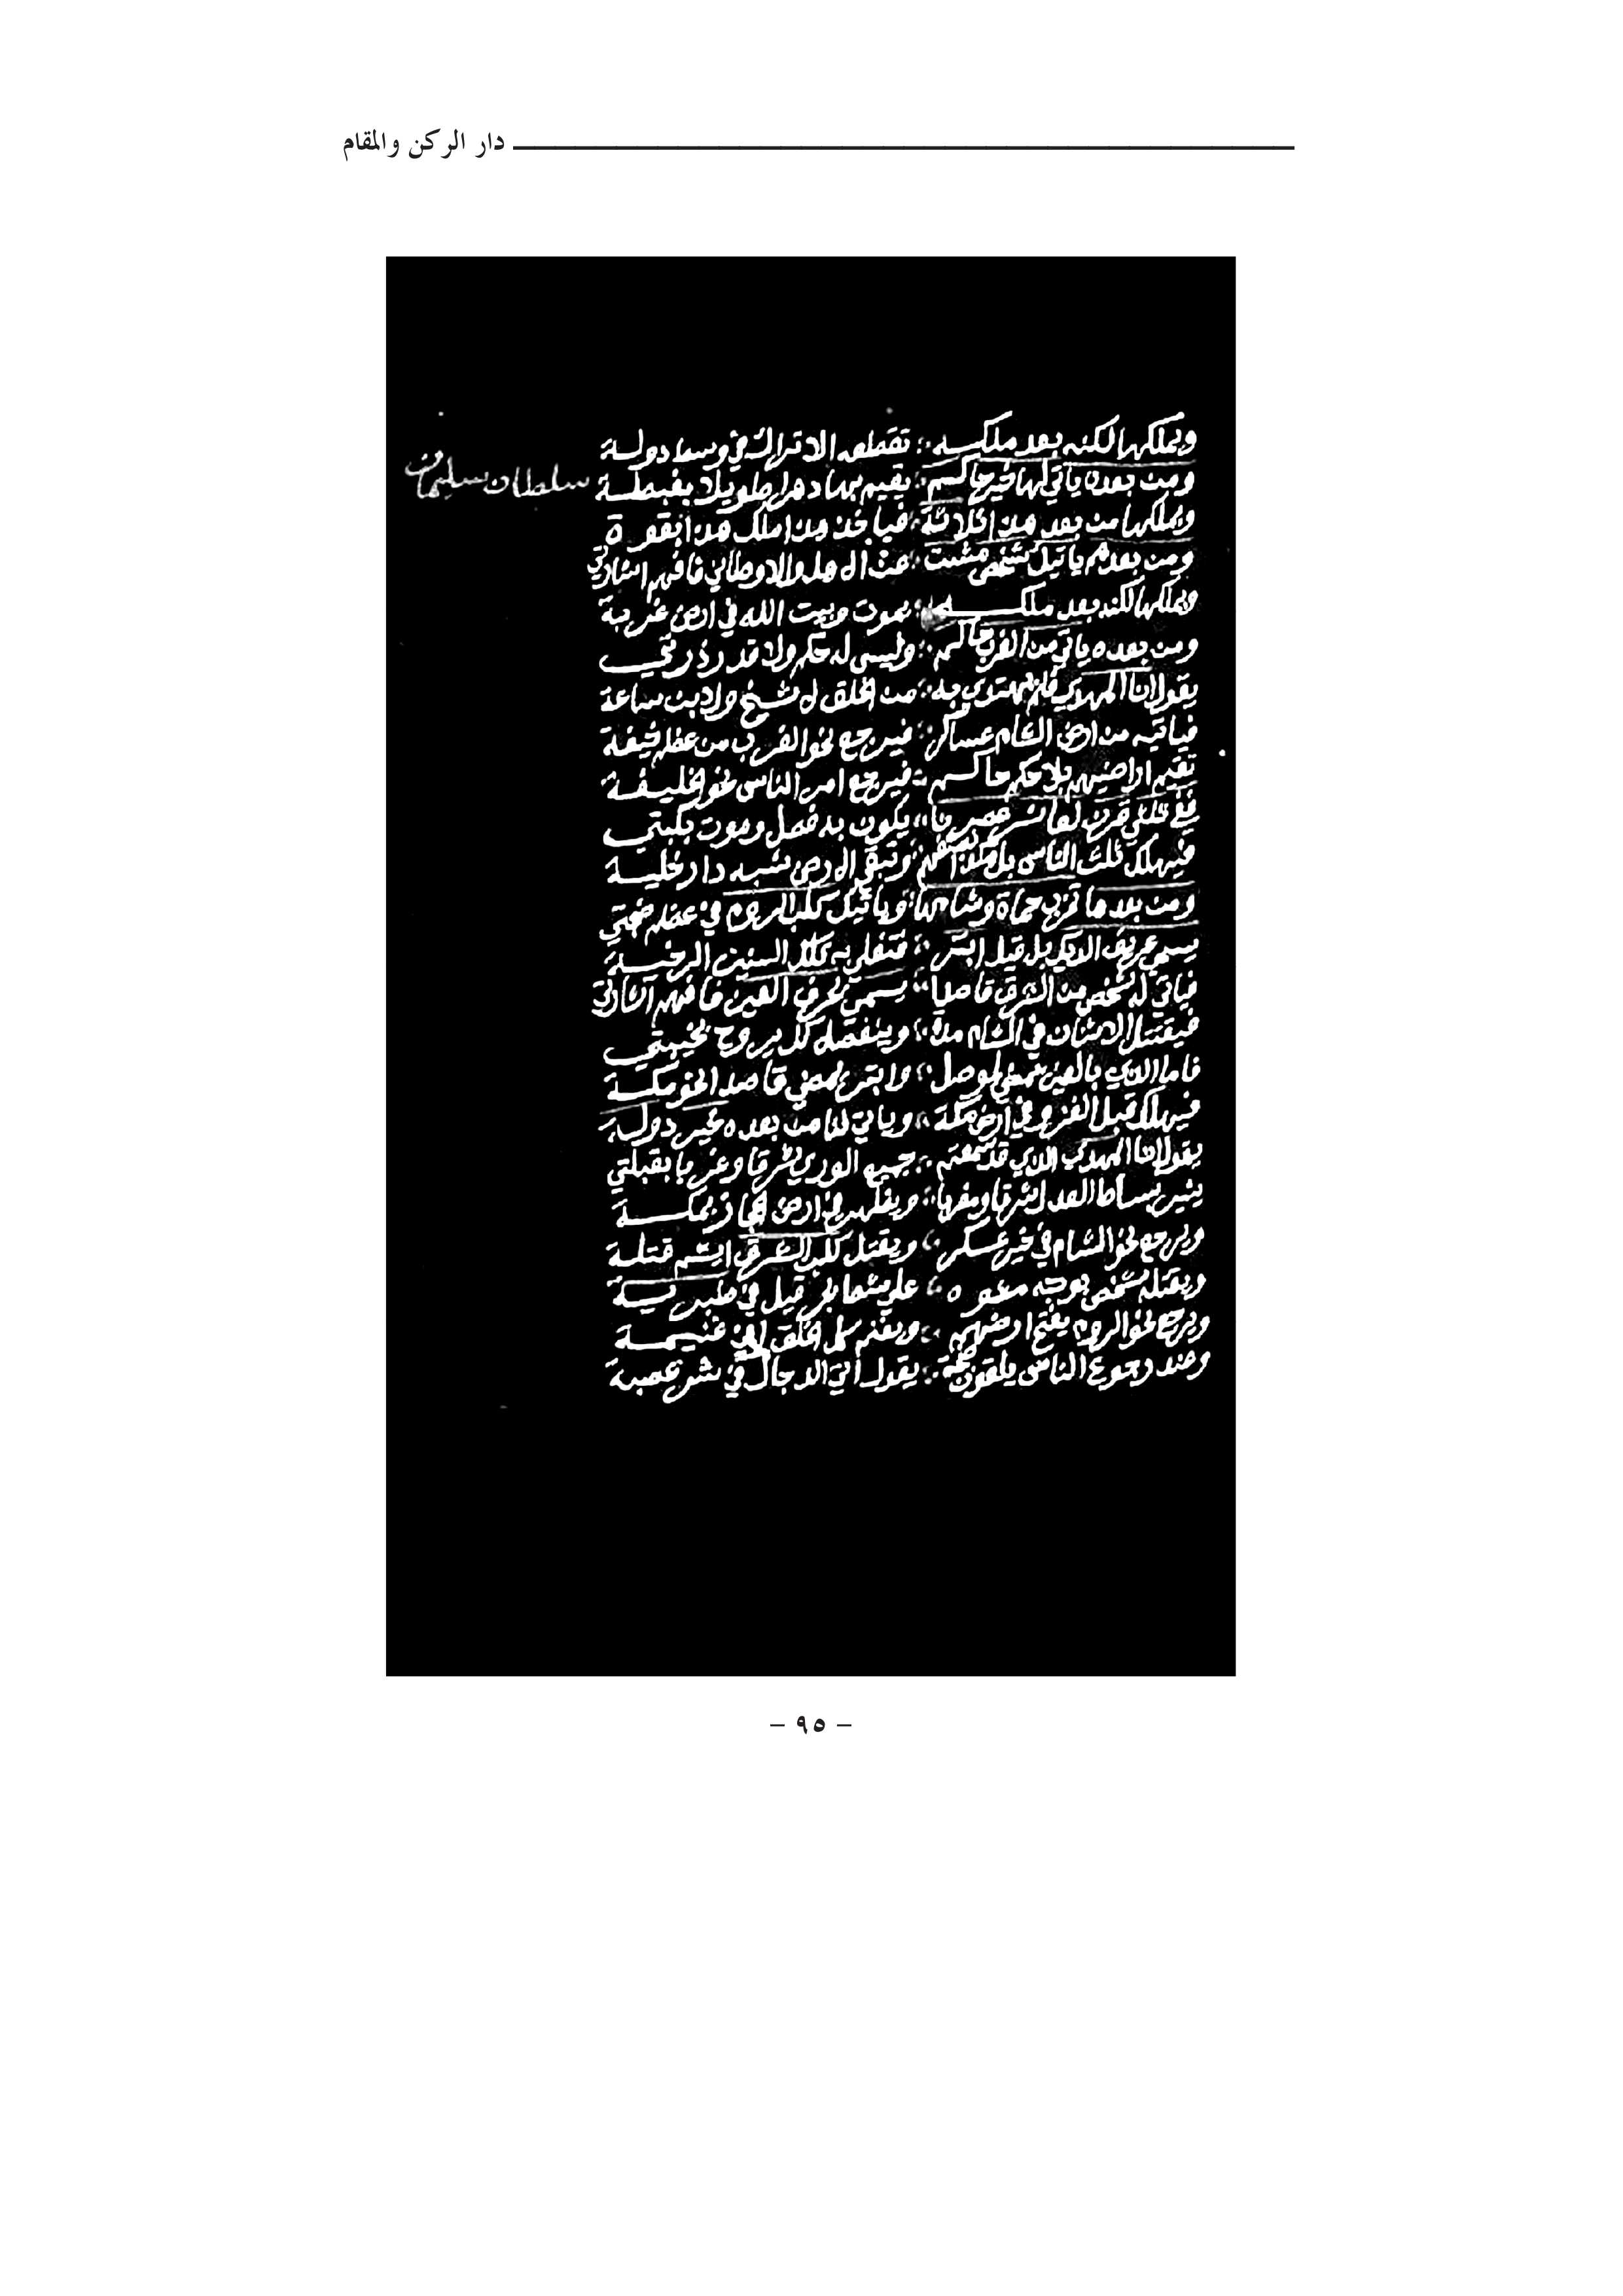 دار الركن والمقام
ويملكها لكنه بعد ملكه ؛ تقطعه الاتراك في وسط دولة
ومن بعده ياتي لها خير حاكم ؛ يقيم بها دهرا طويلا بغبطة
سلطان سليمان
ويملكها من بعد هذا ثلاثة ؛ فياخذ هذا ملك هذا بقوة
ومن بعدهم ياتيك شخص مشتت ؛ عن الاهل والاوطان فافهم اشارتي
ويملكها لكنه بعد ملكه ؛ يموت وبيت الله في ارض غربة
ومن بعده ياتي من الغرب حاكم ؛ وليس له حكم ولا قدر
يقول انا المهدي به ؛ من الخلق الا شيخ ولا بن ساعة
فياتيه من ارض الشام عساكر ؛ فيرجع نحو الغرب من عظم خيفة
تقيم اراضيهم بلا حكم حاكم ؛ فيرجع امر الناس نحو الخليفة
قرن لعاشر عصرنا ؛ يكون به فصل وموت
فيهلك ثلث الناس بل ؛ وتبقى الارض شبه دار خلية
ومن بعدها تخرب حماة وشامها ؛ وياتيك كلب الروم في عظم
يسمى بل قيل ابتر ؛ كلك السنين الرخية
فياتي له شخص من الشرق قاصدا ؛ يسمى بحرف العين فافهم اشارتي
فيقتتل الاثنان في الشام مدة ؛ كل يروح بخيبتي
فاما الذي بالعين يمضي لموصل ؛ والابتر يمضي قاصدا نحو مكة
فيهلك قبل الغزو في ارض مكة ؛ وياتي لنا من بعده خير دولة
يقول انا المهدي الذي قد سمعتم ؛ جميع الورى شرقا وغربا بقبلتي
يثير بساط العدل شرقا ومغربا ؛ ويظهر في ارض الحجاز بمكة
ويرجع نحو الشام في خير عسكر ؛ ويقتل كلب الشرق ايشم قتلة
ويقتله شخص بوجه ؛ على قيل في طبرية
ويرجع نحو الروم يفتح ارضهم ؛ ويغنم كل الخلق غنيمة
وعند رجوع الناس يلقون ؛ يقول اتى الدجال في شر عصبة
- ٩٥ -